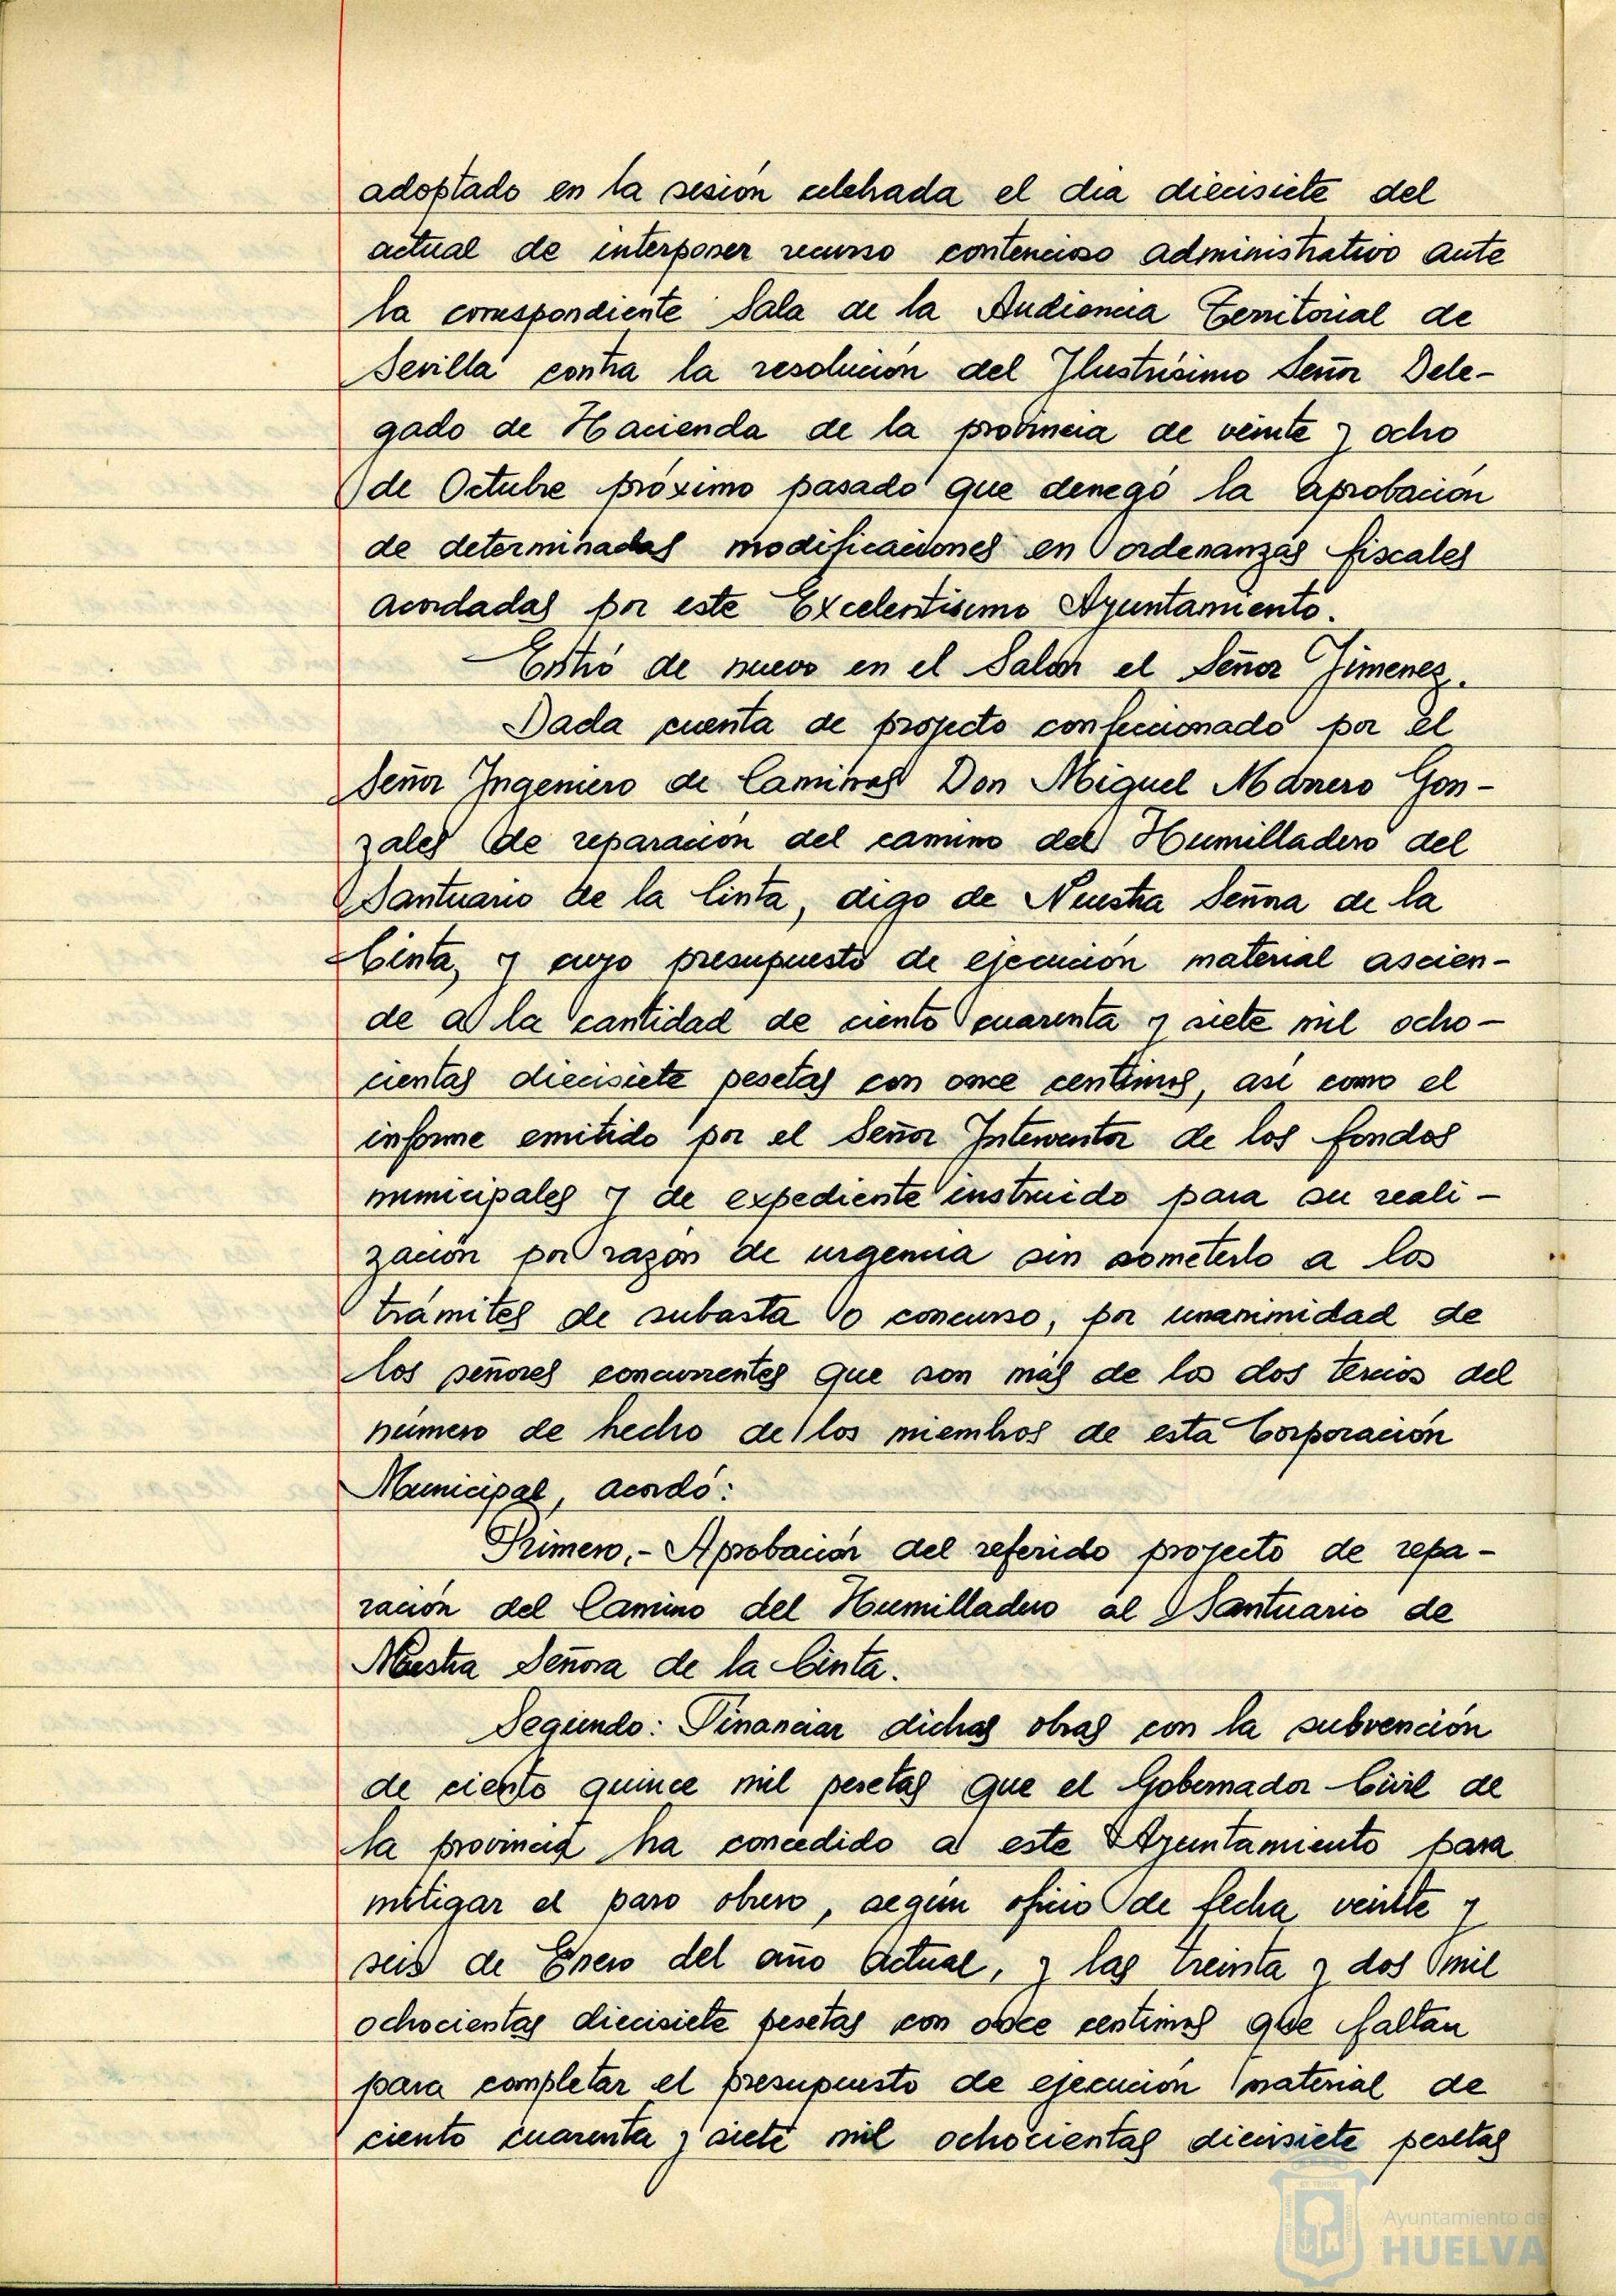 adoptado en la sesión celebrada el dia diecisiete del
actual de interponer recurso contencioso administrativo ante
la correspondiente Sala de la Audiencia Territorial de
Sevilla contra la resolución del Ilustrísimo Señor Dele-
gado de Hacienda de la provincia de veinte y ocho
de Octubre próximo pasado que denegó la aprobación
de determinadas modificaciones en ordenanzas fiscales
acordadas por este Excelentísimo Ayuntamiento.
Entró de nuevo en el Salón el Señor Jimenez.
Dada cuenta de proyecto confeccionado por el
Señor Ingeniero de Caminos Don Miguel Manero Gon-
zales de reparación del camino del Humilladero del
Santuario de la Cinta, digo de Nuestra Señna de la
Cinta, y cuyo presupuesto de ejecución material ascien-
de a la cantidad de ciento cuarenta y siete mil ocho-
cientas diecisiete pesetas con once centimos, asi como el
informe emitido por el Señor Interventor de los fondos
municipales y de expediente instruido para su reali-
zación por razón de urgencia sin someterlo a los
trámites de subasta o concurso, por unanimidad de
los señores concurrentes que son más de los dos tercios del
número de hecho de los miembros de esta Corporación
Municipal, acordó:
Primero.- Aprobación del referido proyecto de repa-
ración del Camino del Humilladero al Santuario de
Nuestra Señora de la Cinta.
Segundo: Financiar dichas obras con la subvención
de ciento quince mil pesetas que el Gobernador Civil de
la provincia ha concedido a este Ayuntamiento para
mitigar el paro obrero, según oficio de fecha veinte y
seis de Enero del año actual, y las treinta y dos mil
ochocientas diecisiete pesetas con once centimos que faltan
para completar el presupuesto de ejecución material de
ciento cuarenta y siete mil ochocientas diecisiete pesetas
Ayuntamiento de
HUELVA